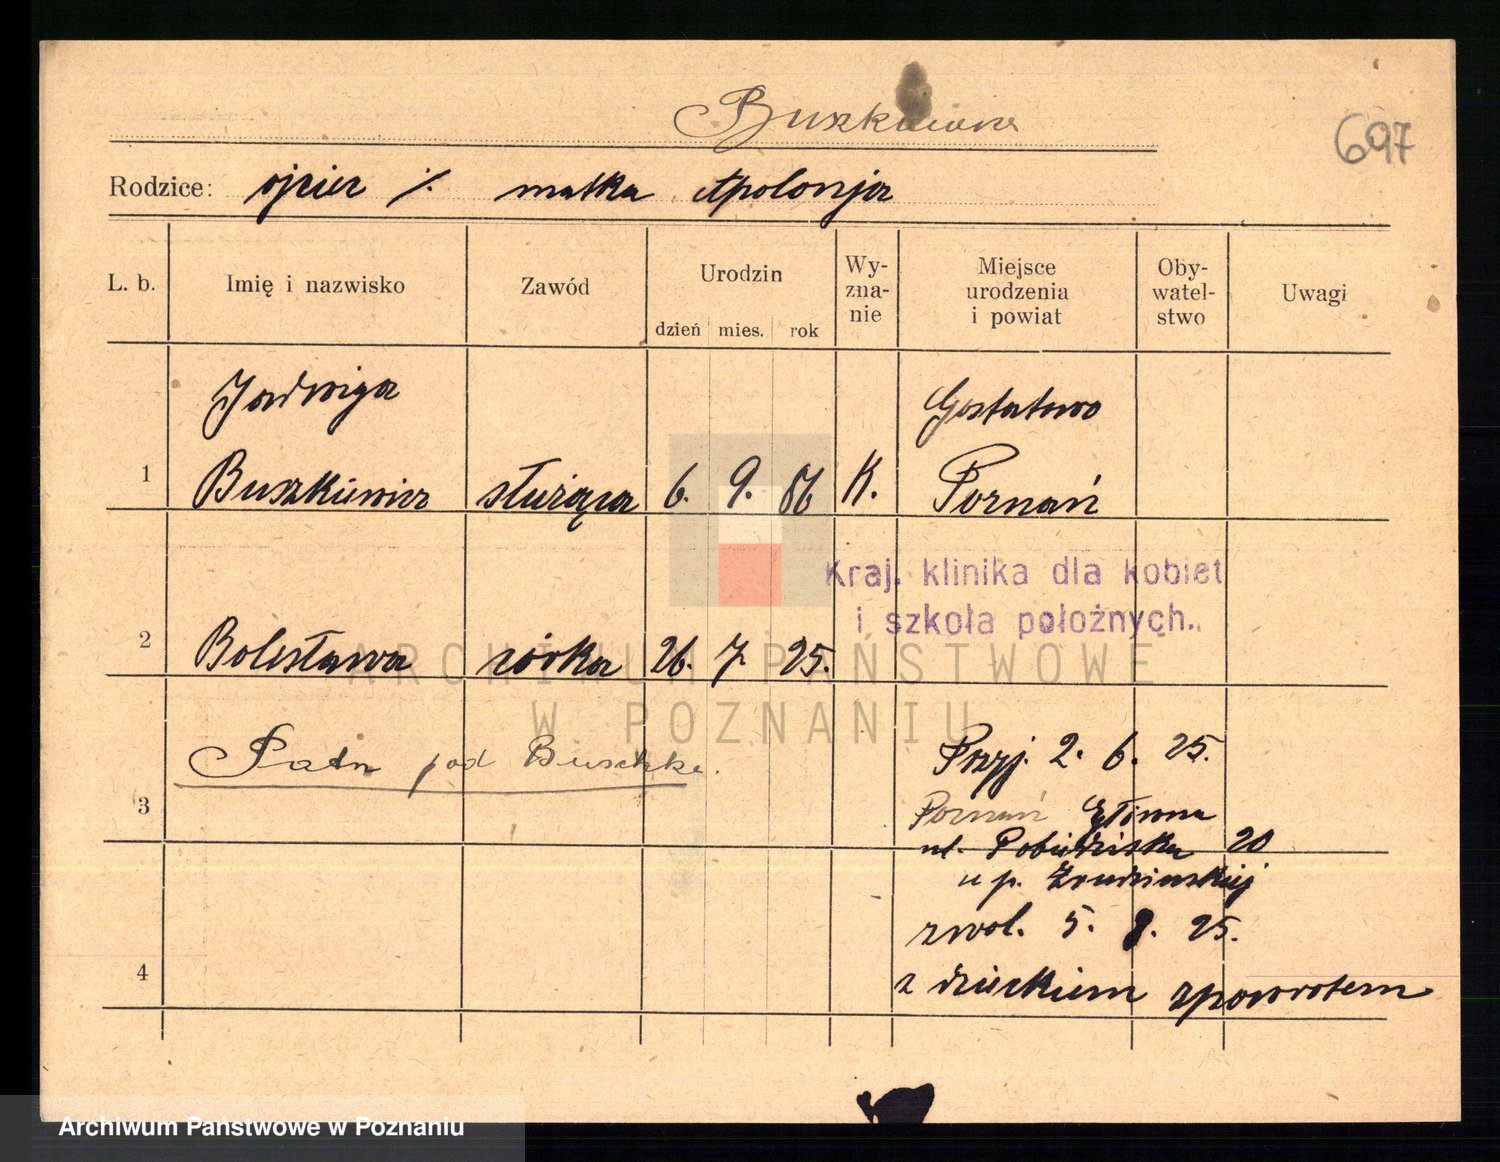 Buszkiewicz
697
Rodzice: ojciec ./. matka Apolonja
L. b. Imię i nazwisko Zawód Urodzin dzień mies. rok Wy-zna-nie Miejsce urodzenia i powiat Oby-watel-stwo Uwagi
Jadwiga Gostatowo
1 Buszkiewicz służąca 6. 9. 86 K. Poznań
Kraj. klinika dla kobiet
i szkoła położnych.
2 Bolesława córka 26. 7. 25.
ARCHIWUM PAŃSTWOWE
W POZNANIU
Patrz pod Buschke.
Przyj. 2. 6. 25.
3
Poznań Główna
ul. Pobiedziska 20
u p.
zwol. 5. 8. 25.
4
z dzieckiem zpowrotem
Archiwum Państwowe w Poznaniu